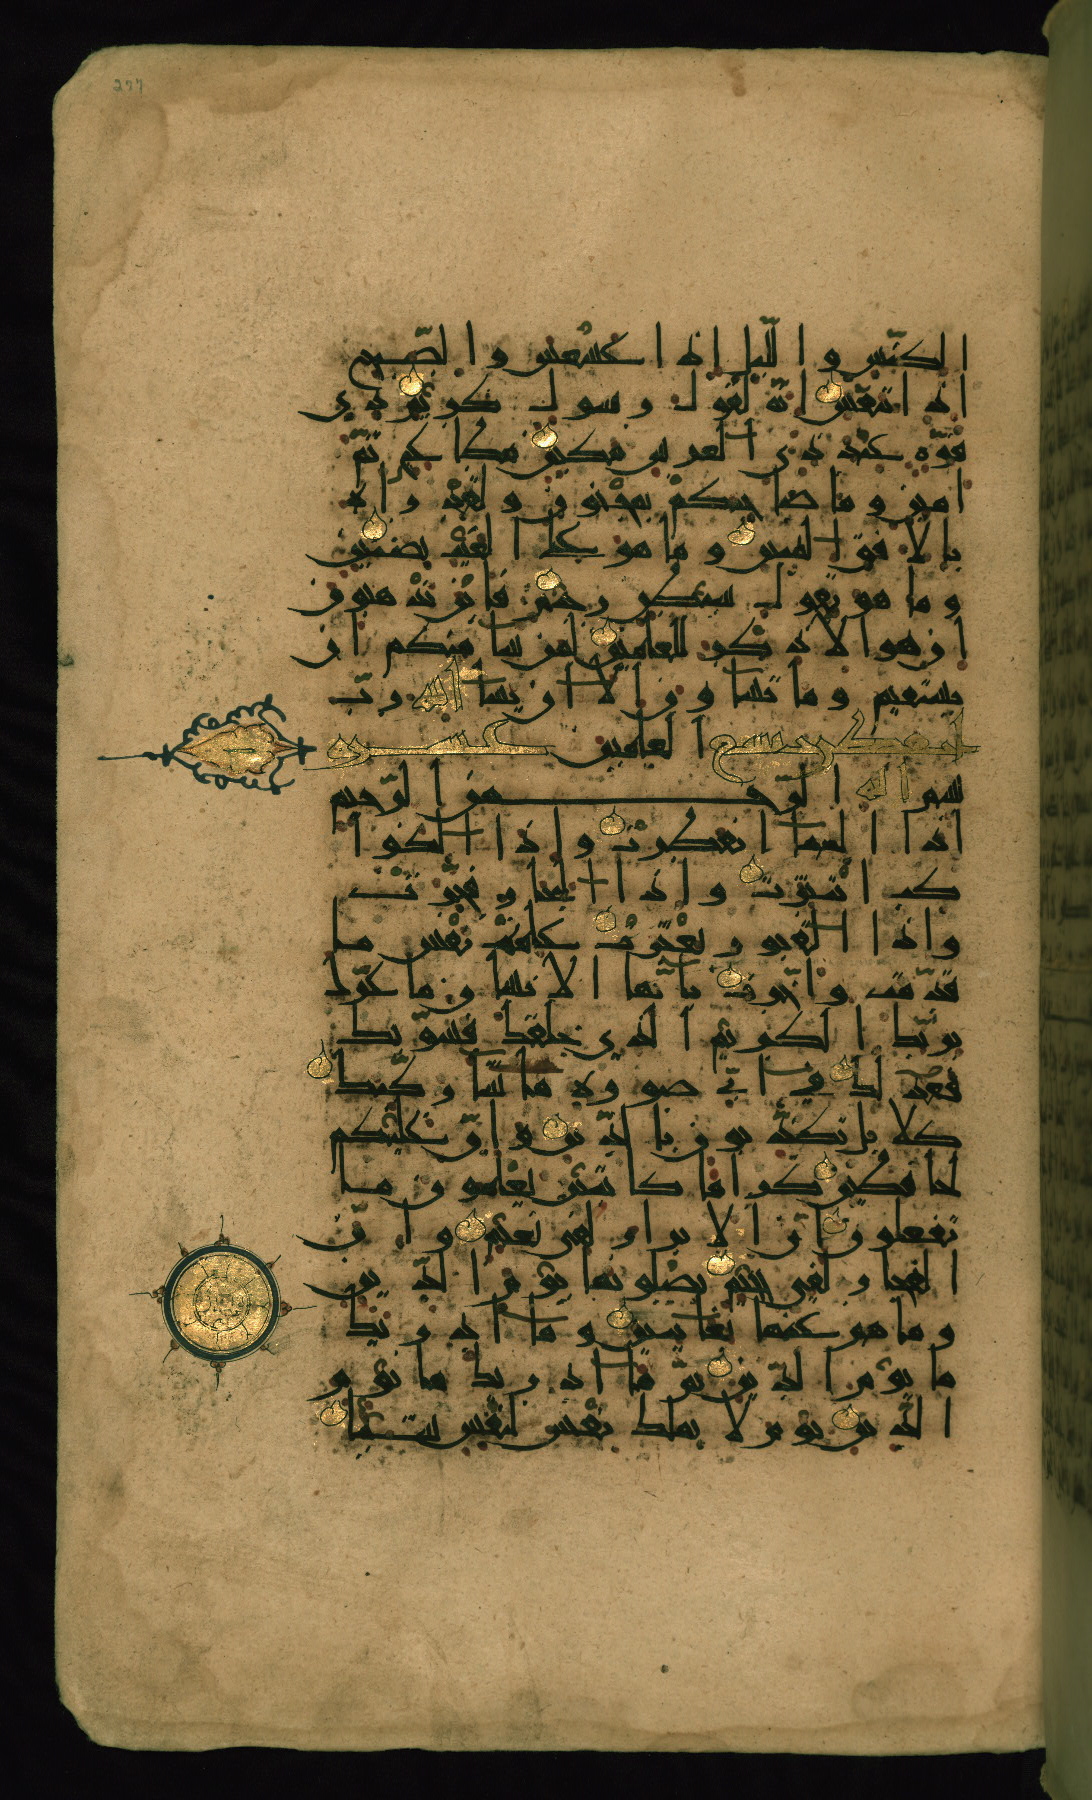 277
الكنّس والّيل اذا عسعس والصّبح
اذا تنفّس انّه لقول رسول كريم ذي
قوّة عند ذي العرش مكين مطاع ثمّ
امين وما صاحبكم بمجنون ولقد راه
بالافق المبين وما هو على الغيب بضنين
وما هو بقول شيطن رجيم فاين تذهبون
ان هو الا ذكر للعلمين لمن شا منكم ان
يستقيم وما تشاون الا ان يشا الله ربّ
انفطرت تسع العلمين عشره
بسم الله الرّحمن الرّحيم
اذا السما انفطرت واذا الكوا
كب انتثرت واذا البحار فجّرت
واذا القبور بعثرت علمت نفس ما
قدّمت واخّرت يايّها الانسان ما غرّك
بربّك الكريم الذي خلقك فسوّيك
فعدلك في ايّ صورة ما شا ركّبك
كلا بل تكذّبون بالدّين وانّ عليكم
لحافظين كراما كاتبين يعلمون ما
تفعلون انّ الابرار لفي نعيم وانّ
الفجار لفي جحيم يصلونها يوم الدّين
وما هم عنها بغايبين وما ادريك
ما يوم الدّين ثمّ ما ادريك ما يوم
الدّين يوم لا تملك نفس لنفس شيئا